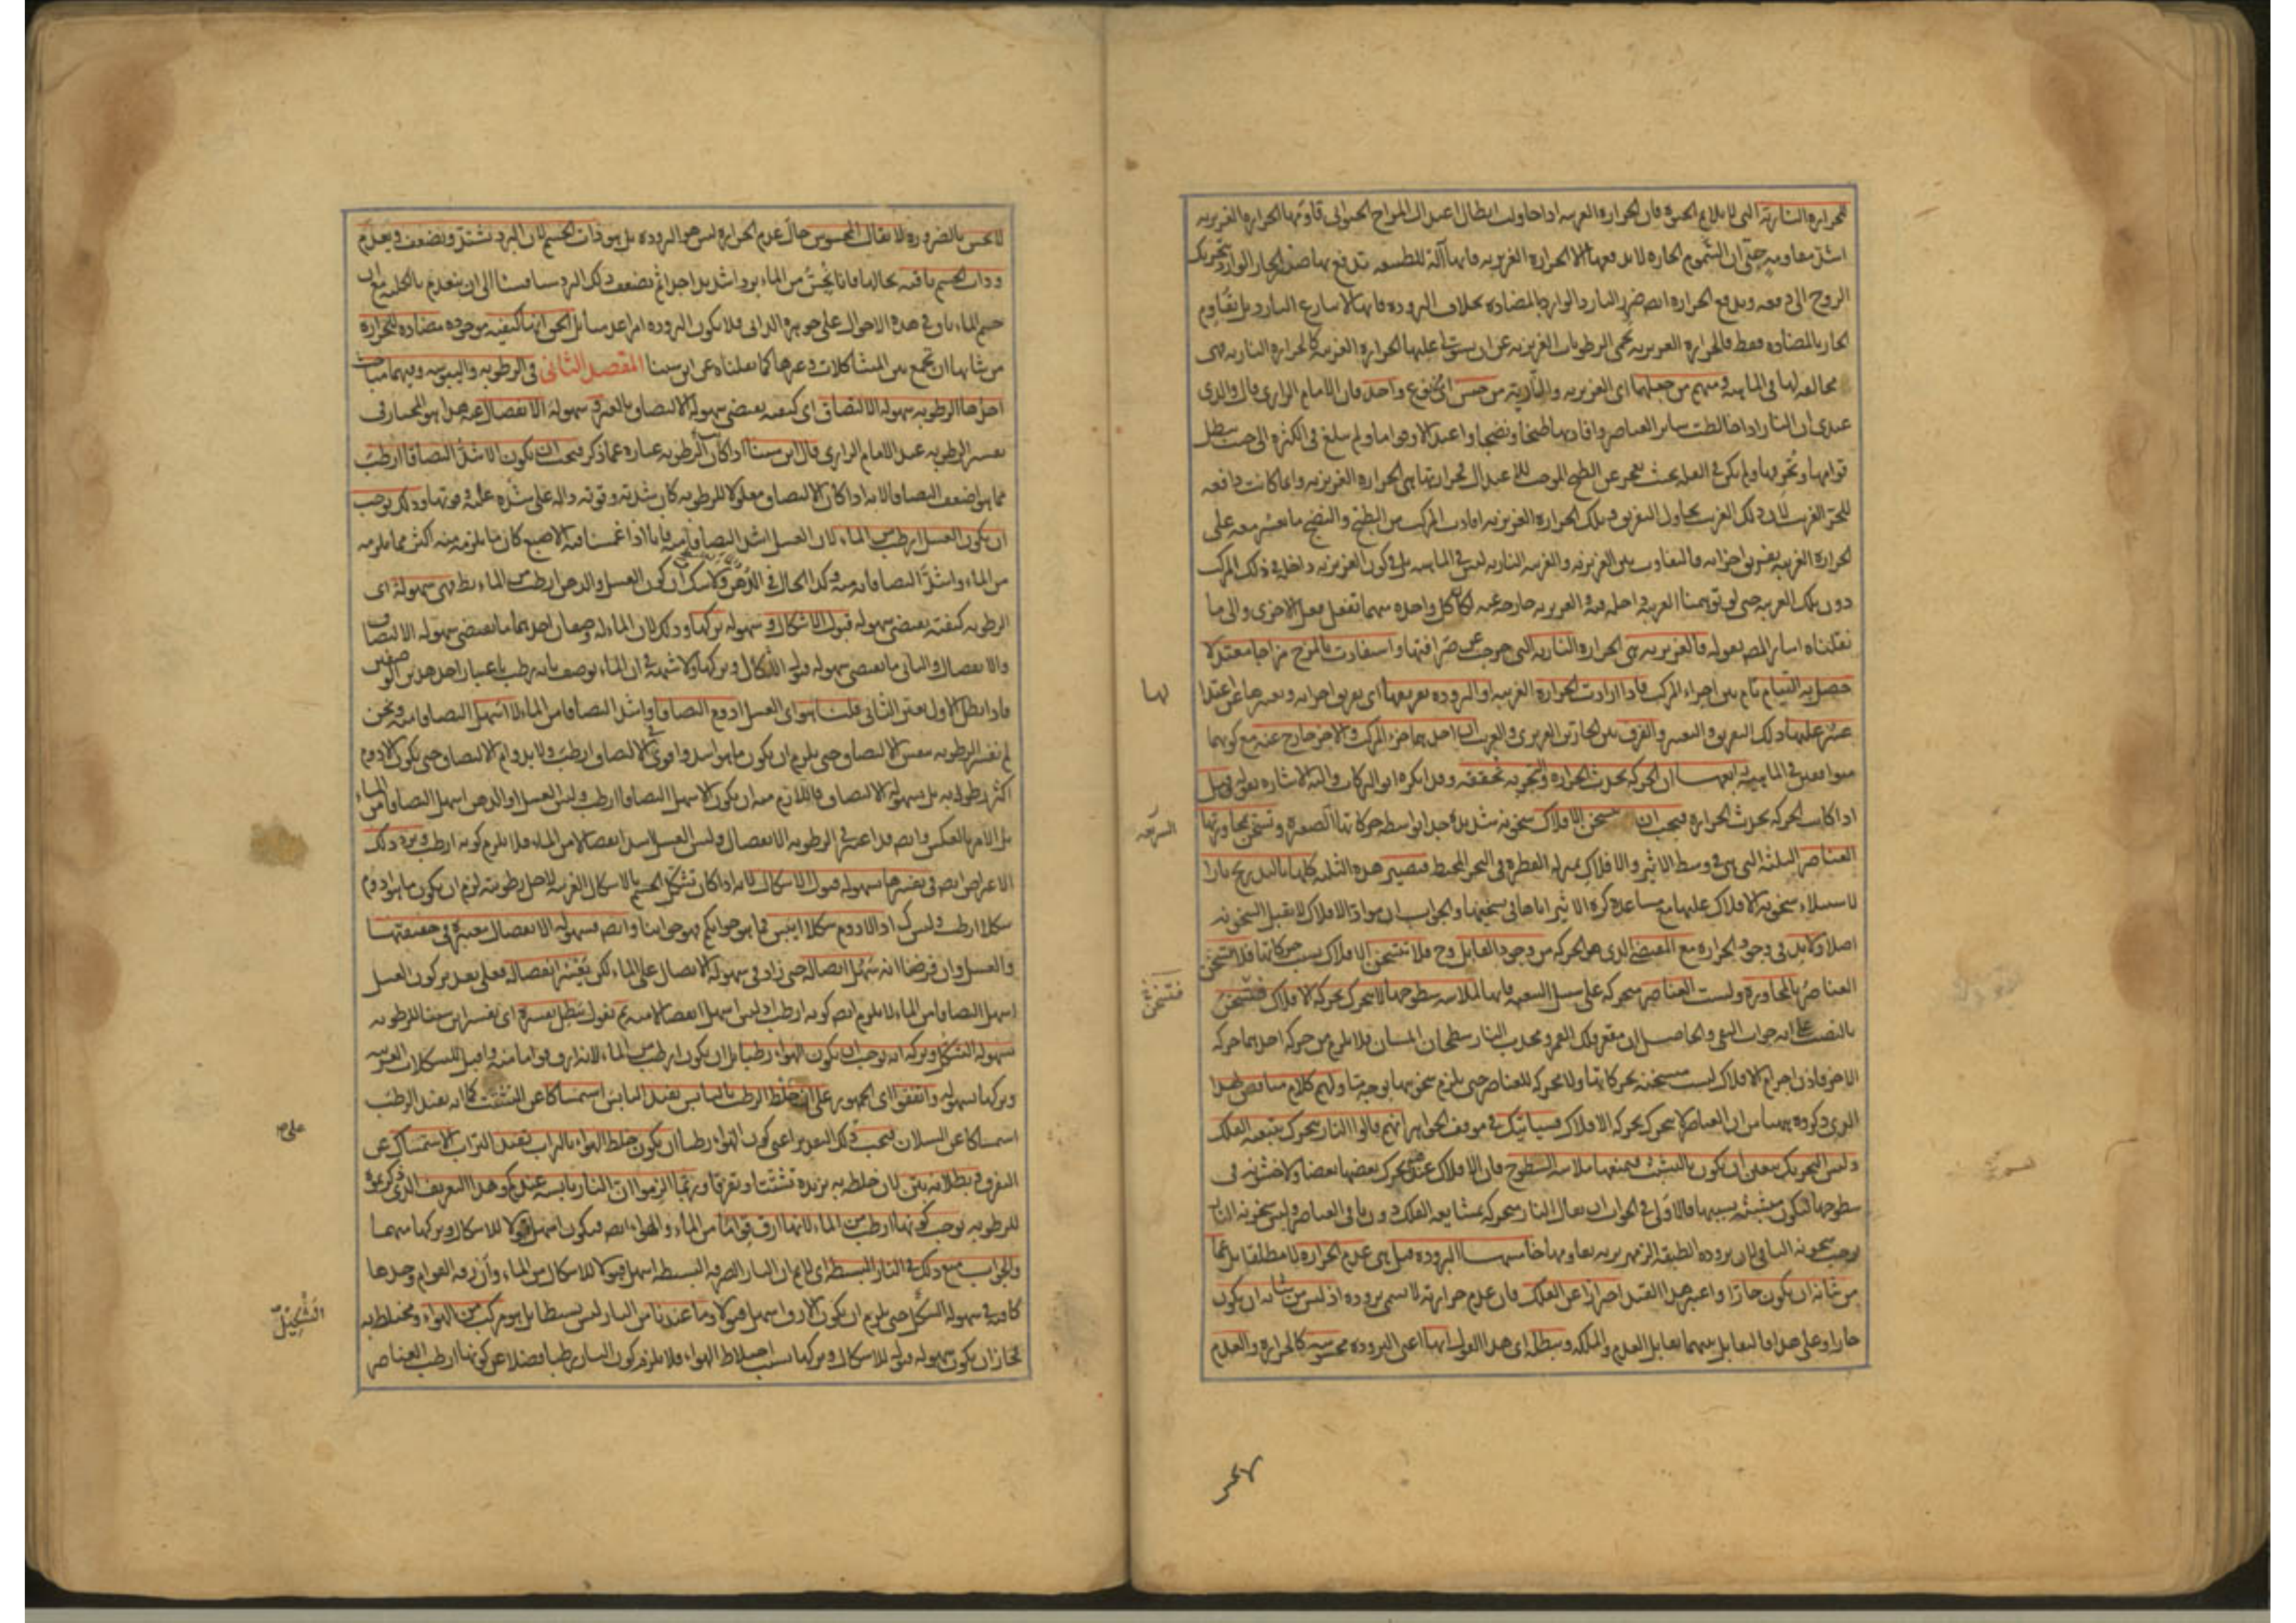 للحرارة النارية التى لا يلايم الحيوة فان الحرارة الغريبة اذا حاولت ابطال اعتدال المزاج الحيوانى قاومتها الحرارة الغريزية
اشد مقاومة حتى ان السموم الحارة لا يدفعها الا الحرارة الغريزية فانها آلة للطبيعة تدفع بها ضرر الحار الوارد بتحريك
الروح الى دفعه ويدفع الحرارة ايضا ضرر البارد الوارد بالمضادة بخلاف البرودة فانها لا تنازع البارد بل تقاوم
الحار بالمضادة فقط فالحرارة الغريزية تحمى الرطوبات الغريزية عن ان يستولى عليها الحرارة الغريبة كالحرارة النارية فهى
مخالفة لها فى الماهية ومنهم من جعلهما اى الغريزية والنارية من جنس اى نوع واحد فان الامام الرازى قال والذى
عندى ان النار اذا خالطت سائر العناصر وافادتها طبخا ونضجا واعتدالا وقواما ولم تبلغ فى الكثرة الى حيث تبطل
قوامها وتحرقها ولم يكن فى القلة بحيث تعجز عن الطبخ الموجب للاعتدال فحرارتها هى الحرارة الغريزية وانما كانت دافعة
للحر الغريب لان ذلك الغريب يحاول التفريق وتلك الحرارة الغريزية افادت المركب من الطبخ والنضج ما يعسر معه على
الحرارة الغريبة تفريق اجزائه فالتفاوت بين الغريزية والغريبة النارية ليس فى الماهية بل فى كون الغريزية داخلة فى ذلك المركب
دون تلك الغريبة حتى لو توهمنا الغريبة داخلة فيه والغريزية خارجة عنه لكان كل واحدة منهما تفعل فعل الاخرى والى ما
نقلناه اشار المص بقوله فالغريزية هى الحرارة النارية التى خرجت عن صرافتها واستفادت بالمزج مزاجا معتدلا
حصل به التيام تام بين اجزاء المركب فاذا ارادت الحرارة الغريبة او البرودة تفريقها اى تفريق اجزائه وتغيرها عن اعتدا
لها
عسر عليها ذلك التفريق والتغيير والفرق بين الحارين الغريزى والغريب ان احدهما جزء المركب والاخر خارج عنه مع كونهما
متوافقين فى الماهية رابعها ان الحركة تحدث الحرارة والتجربة تحققه وقد انكره ابو البركات واليه الاشارة بقوله قيل
اذا كانت الحركة تحدث الحرارة فيجب ان تسخن الافلاك سخونة شديدة جدا بواسطة حركاتها السريعة وتسخن بمجاورتها
السريعة
العناصر الثلثة التى هى فى وسط الاثير والافلاك بمنزلة القطرة فى البحر المحيط فتصير هذه الثلثة كلها بالتدريج نارا
لاستيلاء سخونة الافلاك عليها مع مساعدة كرة الاثير اياها فى تسخينها والجواب ان مواد الافلاك لا تقبل السخونة
اصلا ولا بد فى وجود الحرارة مع المقتضى الذى هو الحركة من وجود القابل وح فلا تتسخن الافلاك بسبب حركاتها فلا تتسخن
العناصر بالمجاورة وليست العناصر متحركة على سبيل التبعية فانها لملاسة سطوحها لا تتحرك بحركة الافلاك فتتسخن
فتسخن
بالنصب على انه جواب النفى والحاصل ان مقعر فلك القمر ومحدب النار سطحان املسان فلا يلزم من حركة احدهما حركة
الاخر فاذن اجرام الافلاك ليست متسخنة بحركاتها ولا محركة للعناصر حتى يلزم سخونتها بوجه ما ولهم كلام مناقض لهذا
الذى ذكروه ههنا من ان العناصر لا تتحرك بحركة الافلاك فسيأتيك فى موقف الجواهر انهم قالوا النار تتحرك بتبعية الفلك
وليس التحريك يتعين ان يكون بالتشبث فيمنعها ملاسة السطوح فان الافلاك عندهم يحرك بعضها بعضا ولا خشونة فى
سطوحها لتكون متشبثة بسببها فالاولى فى الجواب ان يقال النار متحركة بمشايعة الفلك دون باقى العناصر وليس سخونة النار
يوجب سخونة الباقى لان برودة الطبقة الزمهريرية تقاومها خامسها البرودة قيل هى عدم الحرارة لا مطلقا بل عما
من شانه ان يكون حارا واعتبر هذا القيد احترازا عن الفلك فان عدم حرارته لا يسمى برودة اذ ليس من شانه ان يكون
حارا وعلى هذا فالتقابل بينهما تقابل العدم والملكة ويبطله اى هذا القول انها اعنى البرودة محسوسة كالحرارة والعدم
لا يحس
لا يحس بالضرورة لا يقال المحسوس حال عدم الحرارة ليس هو البرودة بل هو ذات الجسم لان البرد يشتد ويضعف ويعدم
وذات الجسم باقية بحالها فانا نحس من الماء بردا شديدا جدا ثم يضعف ذلك البرد شيئا فشيئا الى ان ينعدم بالكلية مع ان
جسم الماء باق فى هذه الاحوال على جوهره الذاتى فلا يكون البرودة امرا عدميا بل الحق انها كيفية موجودة مضادة للحرارة
من شانها ان تجمع بين المتشاكلات وغيرها كما نقلناه عن ابن سينا المقصد الثانى فى الرطوبة واليبوسة وفيهما مباحث
احدها الرطوبة سهولة الالتصاق اى كيفية يقتضى سهولة الالتصاق بالغير وسهولة الانفصال عنه هذا هو المختار فى
تفسير الرطوبة عند الامام الرازى قال ابن سينا اذا كان الرطوبة عبارة عما ذكر فيجب ان يكون الاشد التصاقا ارطب
مما هو اضعف التصاقا لانه اذا كان الالتصاق معلولا للرطوبة كان شدته وقوته دالة على شدة علته وقوتها وذلك يوجب
ان يكون العسل ارطب من الماء لان العسل اشد التصاقا منه فانا اذا غمسنا فيه الاصبع كان ما يلزمه منه اكثر مما يلزمه
من الماء واشد التصاقا به منه وكذا الحال فى الدهن ولا شك ان كون العسل والدهن ارطب من الماء بط فهى سهولة اى
الرطوبة كيفية يقتضى سهولة قبول الاشكال وسهولة تركها وذلك لان الماء له وصفان احدهما ما يقتضى سهولة الالتصاق
والانفصال والثانى ما يقتضى سهولة قبول الاشكال وتركها ولا شبهة فى ان الماء يوصف بانه رطب باعتبار احد هذين الوصفين
فاذا بطل الاول تعين الثانى قلنا هو اى العسل ادوم التصاقا واشد التصاقا من الماء لا اسهل التصاقا منه ونحن
لم نفسر الرطوبة بنفس الالتصاق حتى يلزم ان يكون ما هو اشد واقوى فى الالتصاق ارطب ولا بدوام الالتصاق حتى يكون الادوم
اكثر رطوبة بل بسهولة الالتصاق فاللازم منه ان يكون الاسهل التصاقا ارطب وليس العسل او الدهن اسهل التصاقا من الماء
بل الامر بالعكس وايضا قد اعتبر فى الرطوبة الانفصال وليس العسل اسهل انفصالا من الماء فلا يلزم كونه ارطب ويرد ذلك
الاعتراض ايضا فى تفسيرها بسهولة قبول الاشكال لانه اذا كان تشكل الجسم بالاشكال الغريبة لاجل رطوبته لزم ان يكون ما هو ادوم
شكلا ارطب وليس كذلك اذ الادوم شكلا ايبس فما هو جوابكم فهو جوابنا وايضا فسهولة الانفصال معتبرة فى حقيقتها
والعسل وان فرضنا انه سهل اتصاله حتى زاد فى سهولة الاتصال على الماء لكن يعسر انفصاله فعلى تقدير كون العسل
اسهل التصاقا من الماء لا يلزم ايضا كونه ارطب اذ ليس اسهل انفصالا منه ثم نقول يبطل تفسيره اى تفسير ابن سينا للرطوبة
بسهولة التشكل وتركه انه يوجب ان يكون الهواء رطبا بل ان يكون ارطب من الماء لانه ارق قواما منه واقبل للتشكلات الغريبة
وتركها بسهولة واتفقوا اى الجمهور على ان خلط الرطب باليابس يفيد اليابس استمساكا عن التشتت كما انه يفيد الرطب
استمساكا عن السيلان فيجب ذلك التقدير اعنى كون الهواء رطبا ان يكون خلط الهواء بالتراب يفيد التراب الاستمساك عن
على
التفرق وبطلانه بين لان خلطه به يزيده تشتتا وتفرقا وربما الزموا ان النار يابسة عندكم وهذا التعريف الذى ذكرتموه
للرطوبة يوجب كونها ارطب من الماء لانها ارق قواما من الماء والهواء ايضا فيكون اسهل قبولا للاشكال وتركها منهما
والجواب منع ذلك فى النار البسيطة اى لا نم ان النار الصرفة البسيطة اسهل قبولا للاشكال من الماء وان رقة القوام وحدها
كافية فى سهولة التشكل حتى يلزم ان يكون الارق اسهل قبولا وما عندنا من النار ليس بسيطا بل هو مركب من الهواء ومختلط به
التشكل
فجاز ان يكون سهولة قبوله للاشكال وتركها بسبب اختلاط الهواء فلا يلزم كون النار رطبا فضلا عن كونها ارطب العناصر